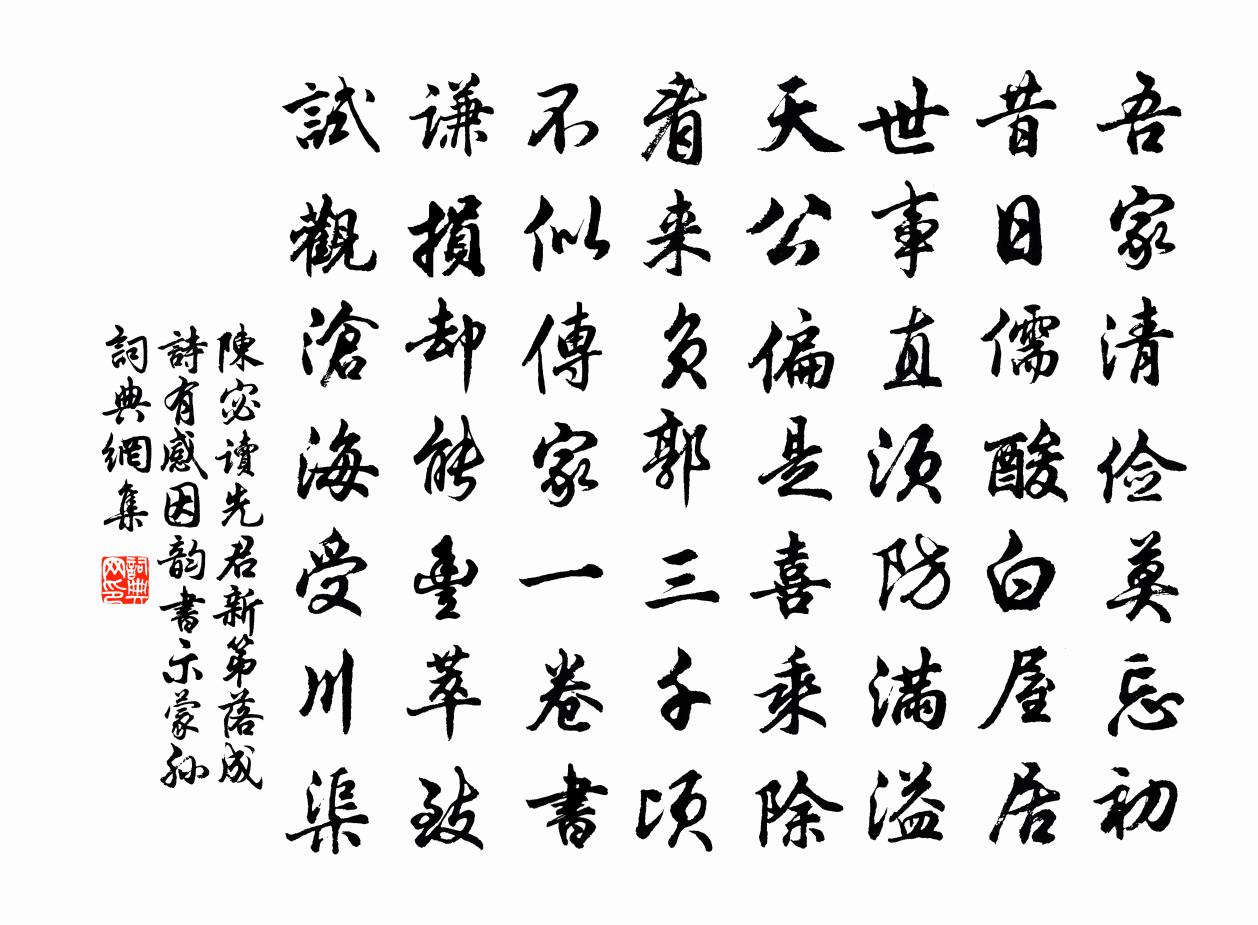 吾家清儉莫忘初
昔日儒酸白屋居
世事直須防滿溢
天公偏是喜乘除
看来負郭三千頃
不似傳家一卷書
謙損却能豐萃致
試觀滄海受川渠
陳宓讀先君新第落成
詩有感因韵書示蒙孙
詞典網集
詞典
网印